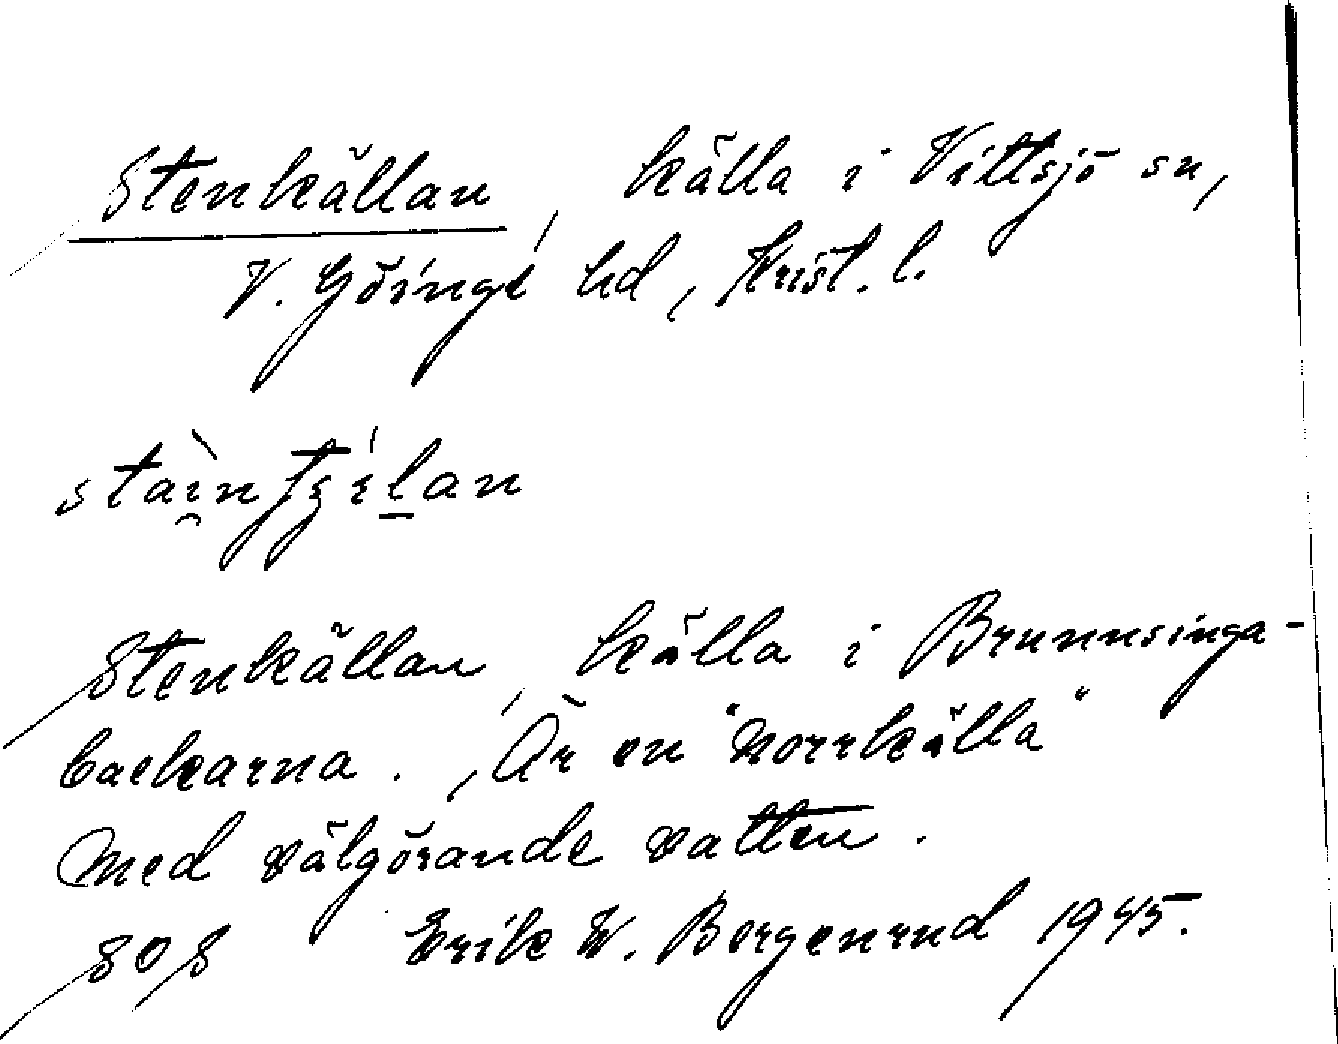 Stenkällan, källa i Vittsjö sn,
V. Göinge hd, Krist. l.
Stenkällan, källa i Brunnsinga-
backarna. Är en "norrkälla"
med välgörande vatten.
Erik W. Bergenrud 1945.